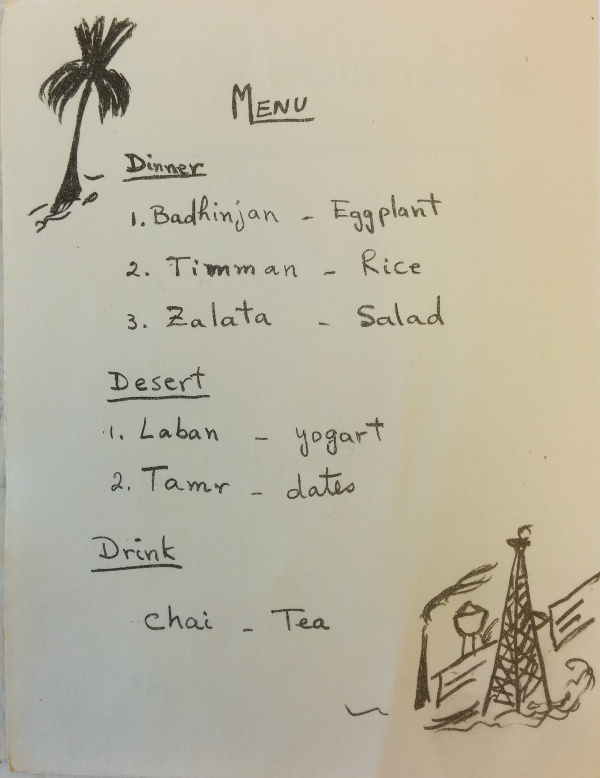 MENU
Dinner
1. Badhinjan - Eggplant
2. Timman - Rice
3. Zalata - Salad
Desert
1. Laban - yogart
2. Tamr - dates
Drink
Chai - Tea